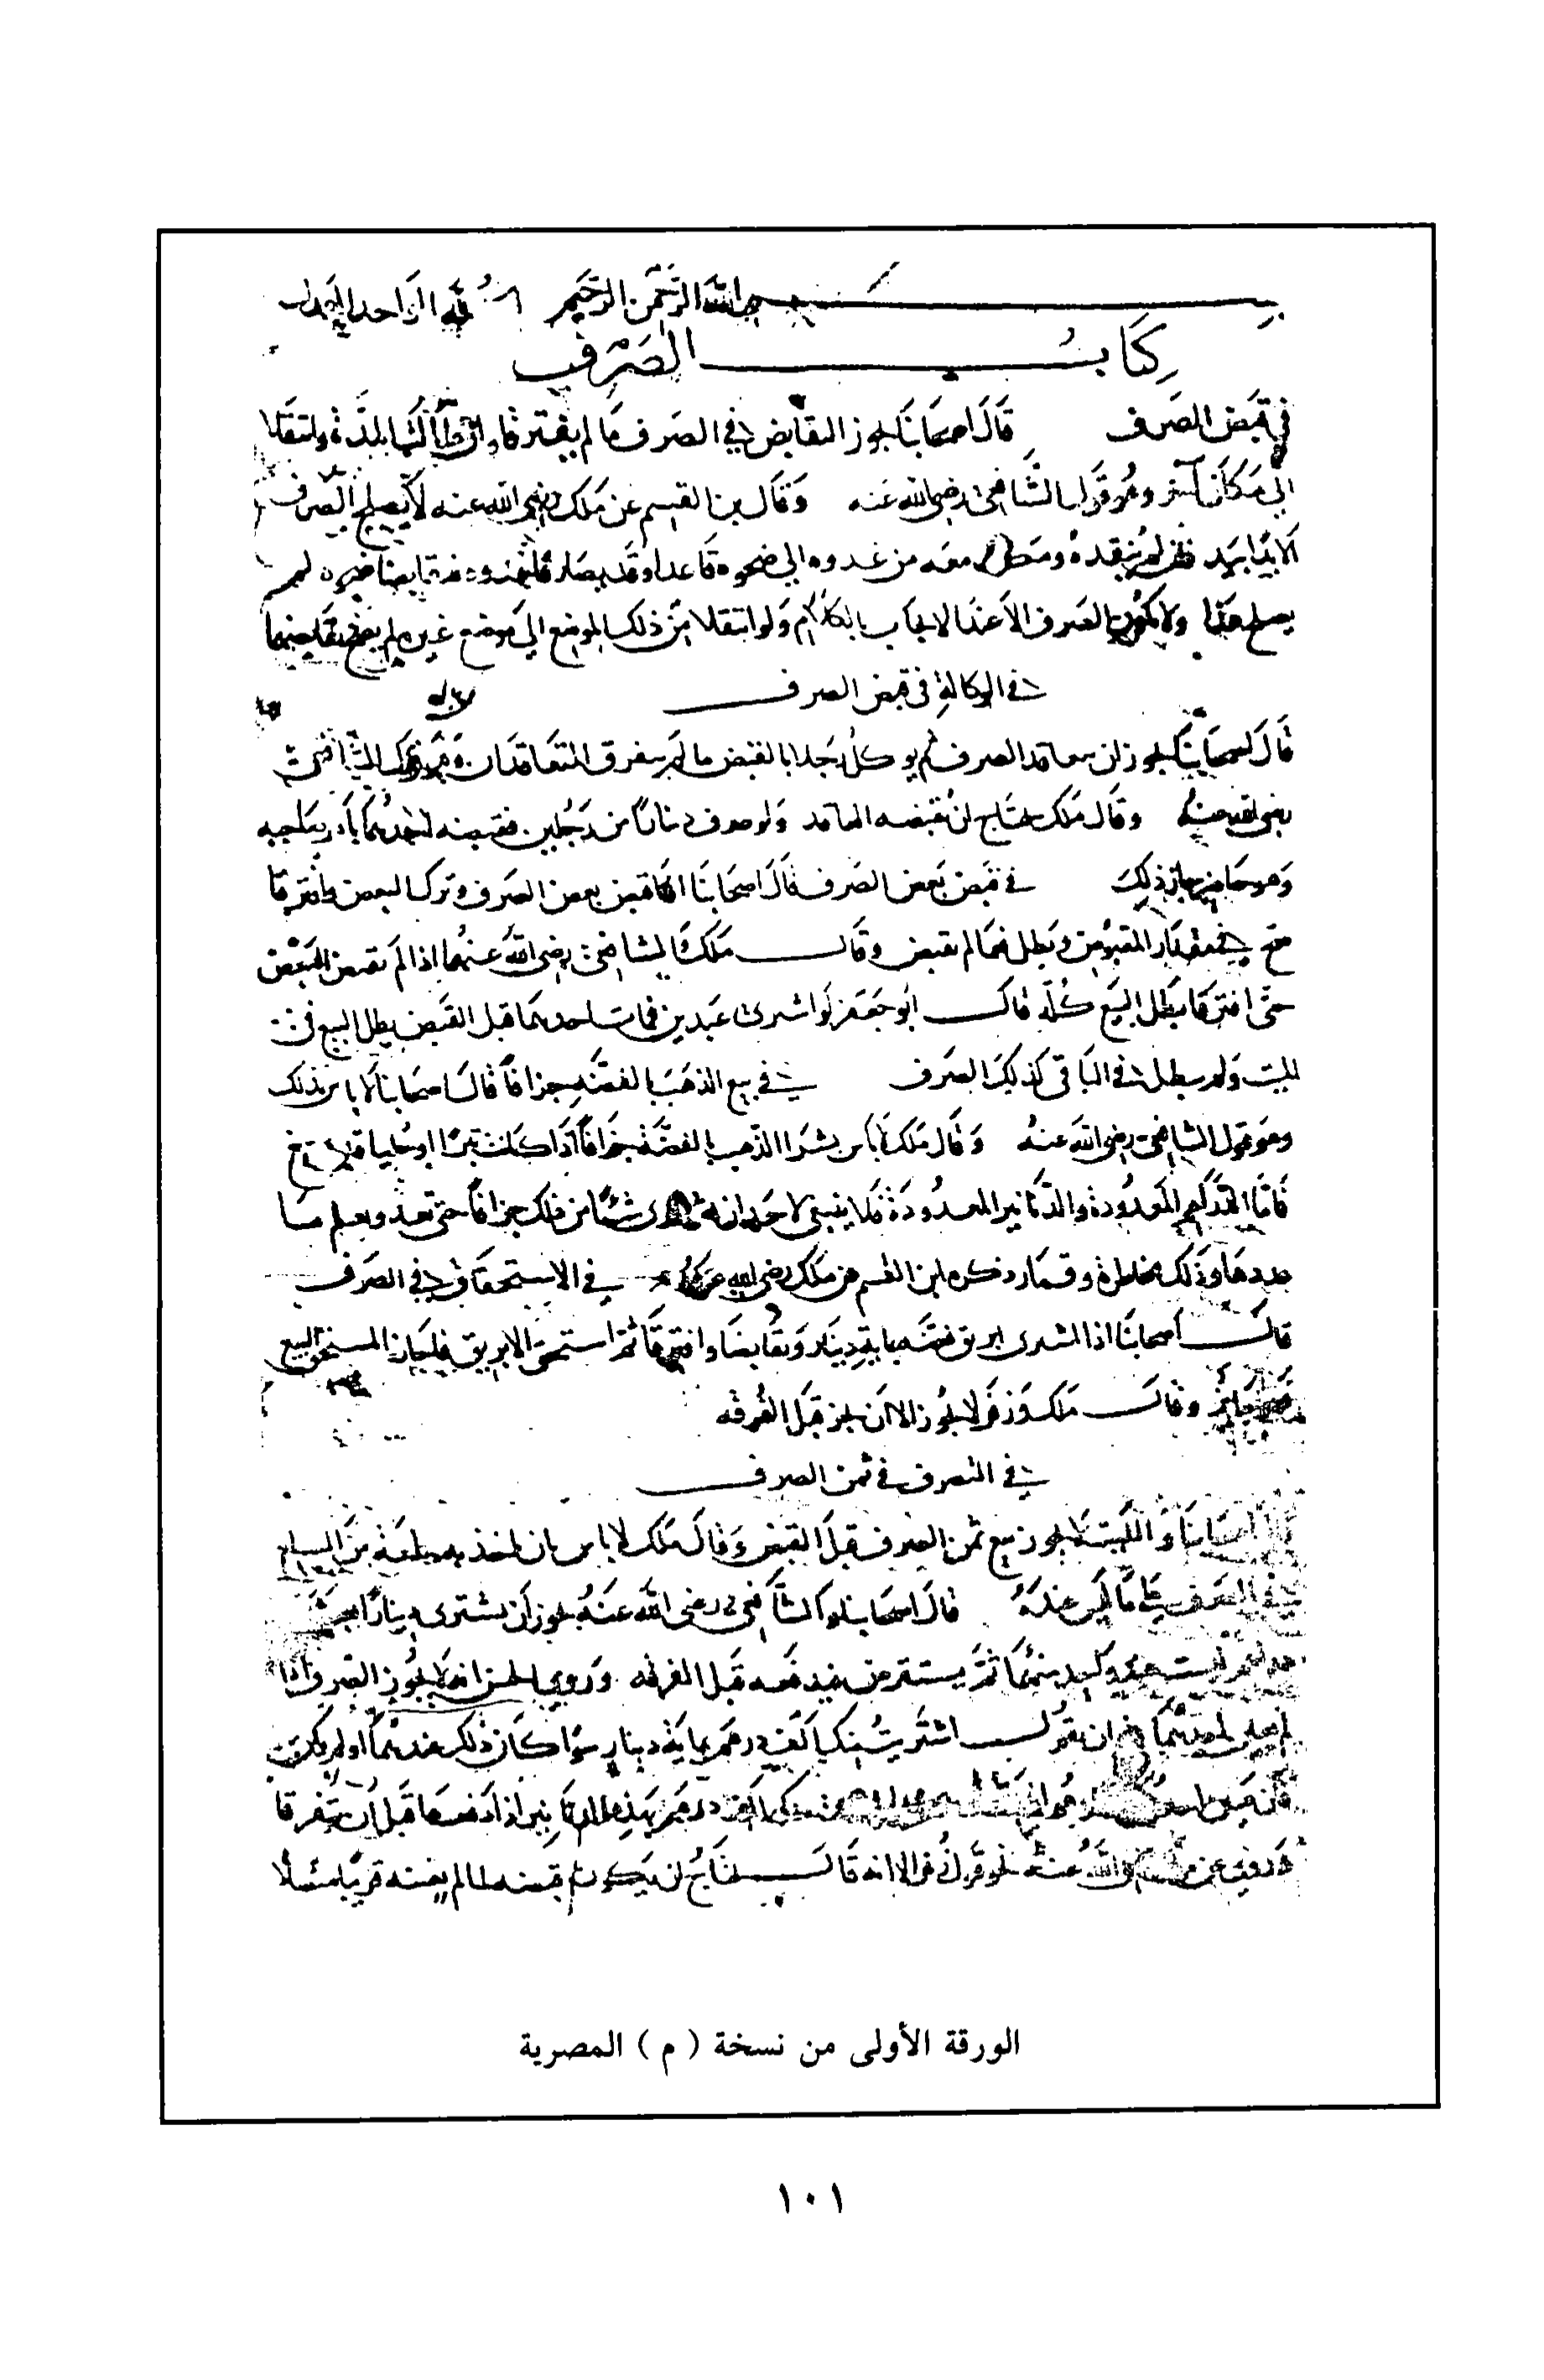 بسم الله الرحمن الرحيم
كتاب الصرف
في قبض الصرف قال اصحابنا يجوز التقابض في الصرف ما لم يفترقا وان طالت المدة وانتقلا
الى مكان آخر وهو قول الشافعي رضي الله عنه وقال بن القسم عن ملك رضي الله عنه لا يصلح الصرف
الا يدا بيد فان لم ينقده ومكث معه من غدوه الى ضحوه قاعدا وقد تصارفا غدوة فتقابضا ضحوة لم
يصلح هذا ولا يكون الصرف الا عند الايجاب بالكلام ولو انتقلا من ذلك الموضع الى موضع غيره لم يصح تقابضهما
في الوكالة في قبض الصرف
قال اصحابنا يجوز ان يتعاقدا الصرف ثم يوكل رجلا بالقبض ما لم يتفرق المتعاقدان وهو قول الشافعي
رضي الله عنه وقال ملك يحتاج ان يقبضه العاقد ولو صرف دينارا من رجلين فقبضه احدهما باذن صاحبه
وهو حاضر جاز ذلك في قبض بعض الصرف قال اصحابنا اذا قبض بعض الصرف وترك البعض وافترقا
صح في مقدار المقبوض وبطل فيما لم يقبض وقال ملك والشافعي رضي الله عنهما اذا لم يقبض البعض
حتى افترقا بطل البيع كله قال ابو جعفر لو اشترى عبدين فمات احدهما قبل القبض بطل البيع في
الميت ولم يبطل في الباقي كذلك الصرف في بيع الذهب بالفضة جزافا قال اصحابنا لا باس بذلك
وهو قول الشافعي رضي الله عنه وقال ملك لا باس بشرا الذهب بالفضة جزافا اذا كانت تبرا او حليا قد صيغ
فاما الدراهم المعدودة والدنانير المعدودة فلا ينبغي لاحد ان يشتري شئا من ذلك جزافا حتى يعد ويعلم ما
عددها وذلك مخاطرة وقمار ذكره ابن القسم عن ملك رضي الله عنه في الاستحقاق في الصرف
قال اصحابنا اذا اشترى ابريق فضة بماية دينار وتقابضا وافترقا ثم استحق الابريق فاجاز المستحق البيع
جاز وقال ملك وزفر لا يجوز الا ان يجيز قبل الفرقه
في التصرف في ثمن الصرف
قال اصحابنا والليث لا يجوز بيع ثمن الصرف قبل القبض وقال ملك لا باس بان ياخذ به سلعة من السلع
في الصرف على ما ليس عنده قال اصحابنا والشافعي رضي الله عنه يجوز ان يشتري دينارا بعشرة
دراهم ليست عند كل واحد منهما ثم يستقرض فيدفعه قبل الفرقه وروي الحسن انه لا يجوز الصرف اذا
ان يقول اشتريت منك الف درهم بماية دينار سوا كان ذلك عندهما او لم يكن
الف درهم بهذه الدنانير اذا دفعها قبل ان يتفرقا
وروي عن ملك رضي الله عنه نحو قول زفر الا انه قال يحتاج ان يكون قبضه لما لم يعينه قريبا متصلا
الورقة الأولى من نسخة ( م ) المصرية
١٠١